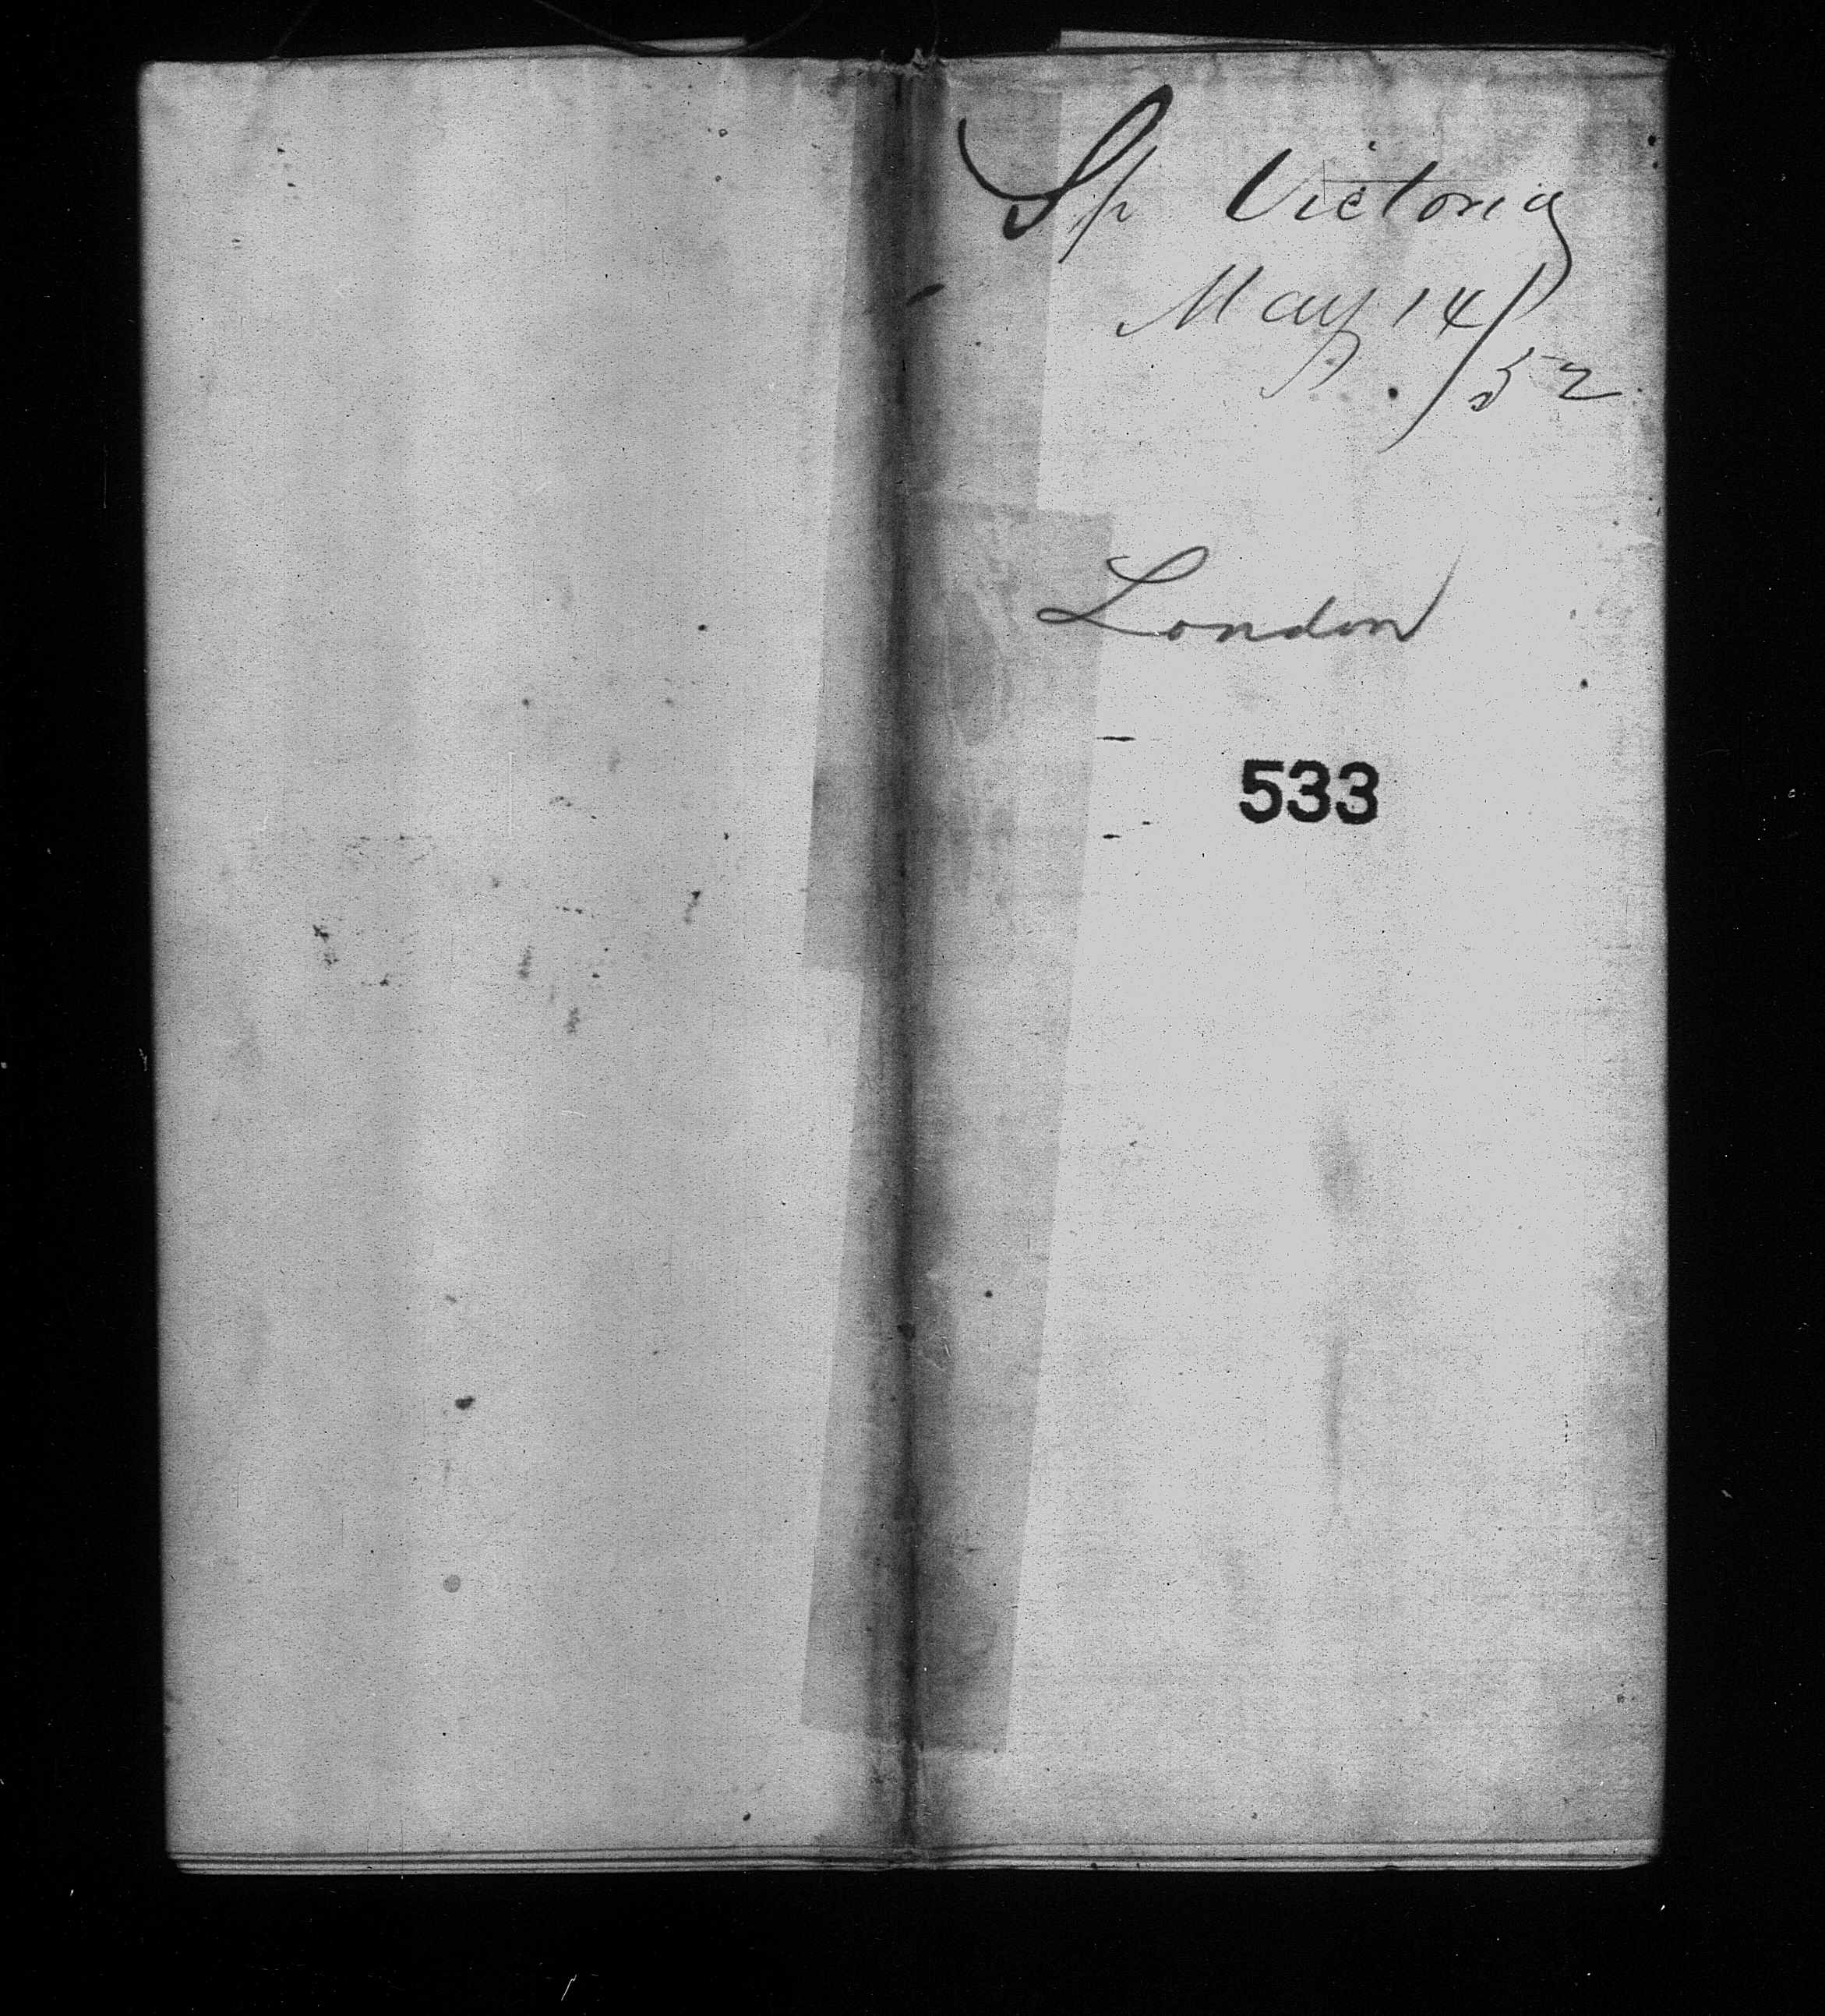 Sp Victoria
May 14/52
London
533